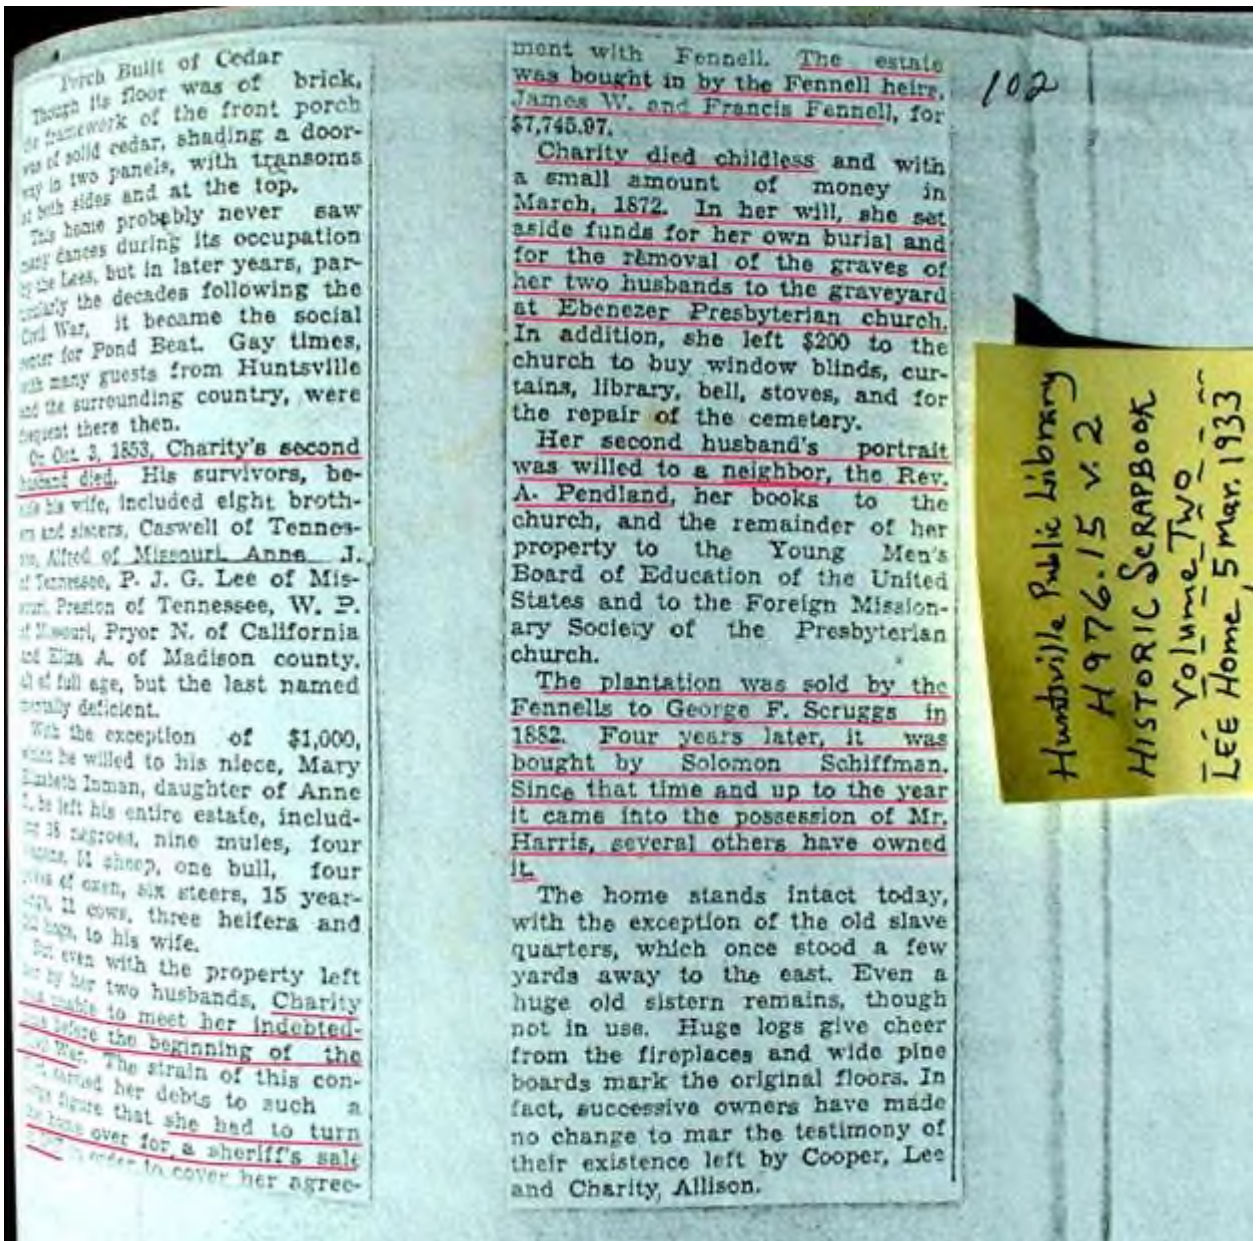 Porch Built of Cedar
Though its floor was of brick,
the framework of the front porch
was of solid cedar, shading a door-
way in two panels, with transoms
at both sides and at the top.
This home probably never saw
many dances during its occupation
by the Lees, but in later years, par-
ticularly the decades following the
Civil War, it became the social
center for Pond Beat. Gay times,
with many guests from Huntsville
and the surrounding country, were
frequent there then.
On Oct. 3, 1853, Charity's second
husband died. His survivors, be-
side his wife, included eight broth-
ers and sisters, Caswell of Tennes-
see, Alfred of Missouri, Anne J.
of Tennessee, P. J. G. Lee of Mis-
souri, Preston of Tennessee, W. P.
of Missouri, Pryor N. of California
and Eliza A. of Madison county,
all of full age, but the last named
mentally deficient.
With the exception of $1,000,
which he willed to his niece, Mary
Elizabeth Inman, daughter of Anne
J., he left his entire estate, includ-
ing negroes, nine mules, four
sheep, one bull, four
of oxen, six steers, 15 year-
lings, 11 cows, three heifers and
hogs, to his wife.
But even with the property left
her by her two husbands, Charity
was unable to meet her indebted-
ness before the beginning of the
Civil War. The strain of this con-
her debts to such a
large figure that she had to turn
the home over for a sheriff's sale
in order to cover her agree-
ment with Fennell. The estate
was bought in by the Fennell heirs,
James W. and Francis Fennell, for
$7,745.97.
Charity died childless and with
a small amount of money in
March, 1872. In her will, she set
aside funds for her own burial and
for the removal of the graves of
her two husbands to the graveyard
at Ebenezer Presbyterian church.
In addition, she left $200 to the
church to buy window blinds, cur-
tains, library, bell, stoves, and for
the repair of the cemetery.
Her second husband's portrait
was willed to a neighbor, the Rev.
A. Pendland, her books to the
church, and the remainder of her
property to the Young Men's
Board of Education of the United
States and to the Foreign Mission-
ary Society of the Presbyterian
church.
The plantation was sold by the
Fennells to George F. Scruggs in
1882. Four years later, it was
bought by Solomon Schiffman.
Since that time and up to the year
it came into the possession of Mr.
Harris, several others have owned
it.
The home stands intact today,
with the exception of the old slave
quarters, which once stood a few
yards away to the east. Even a
huge old sistern remains, though
not in use. Huge logs give cheer
from the fireplaces and wide pine
boards mark the original floors. In
fact, successive owners have made
no change to mar the testimony of
their existence left by Cooper, Lee
and Charity Allison.
102
Huntsville Public Library
H 976.15 v. 2
HISTORIC SCRAPBOOK
Volume Two
LEE Home, 5 Mar. 1933